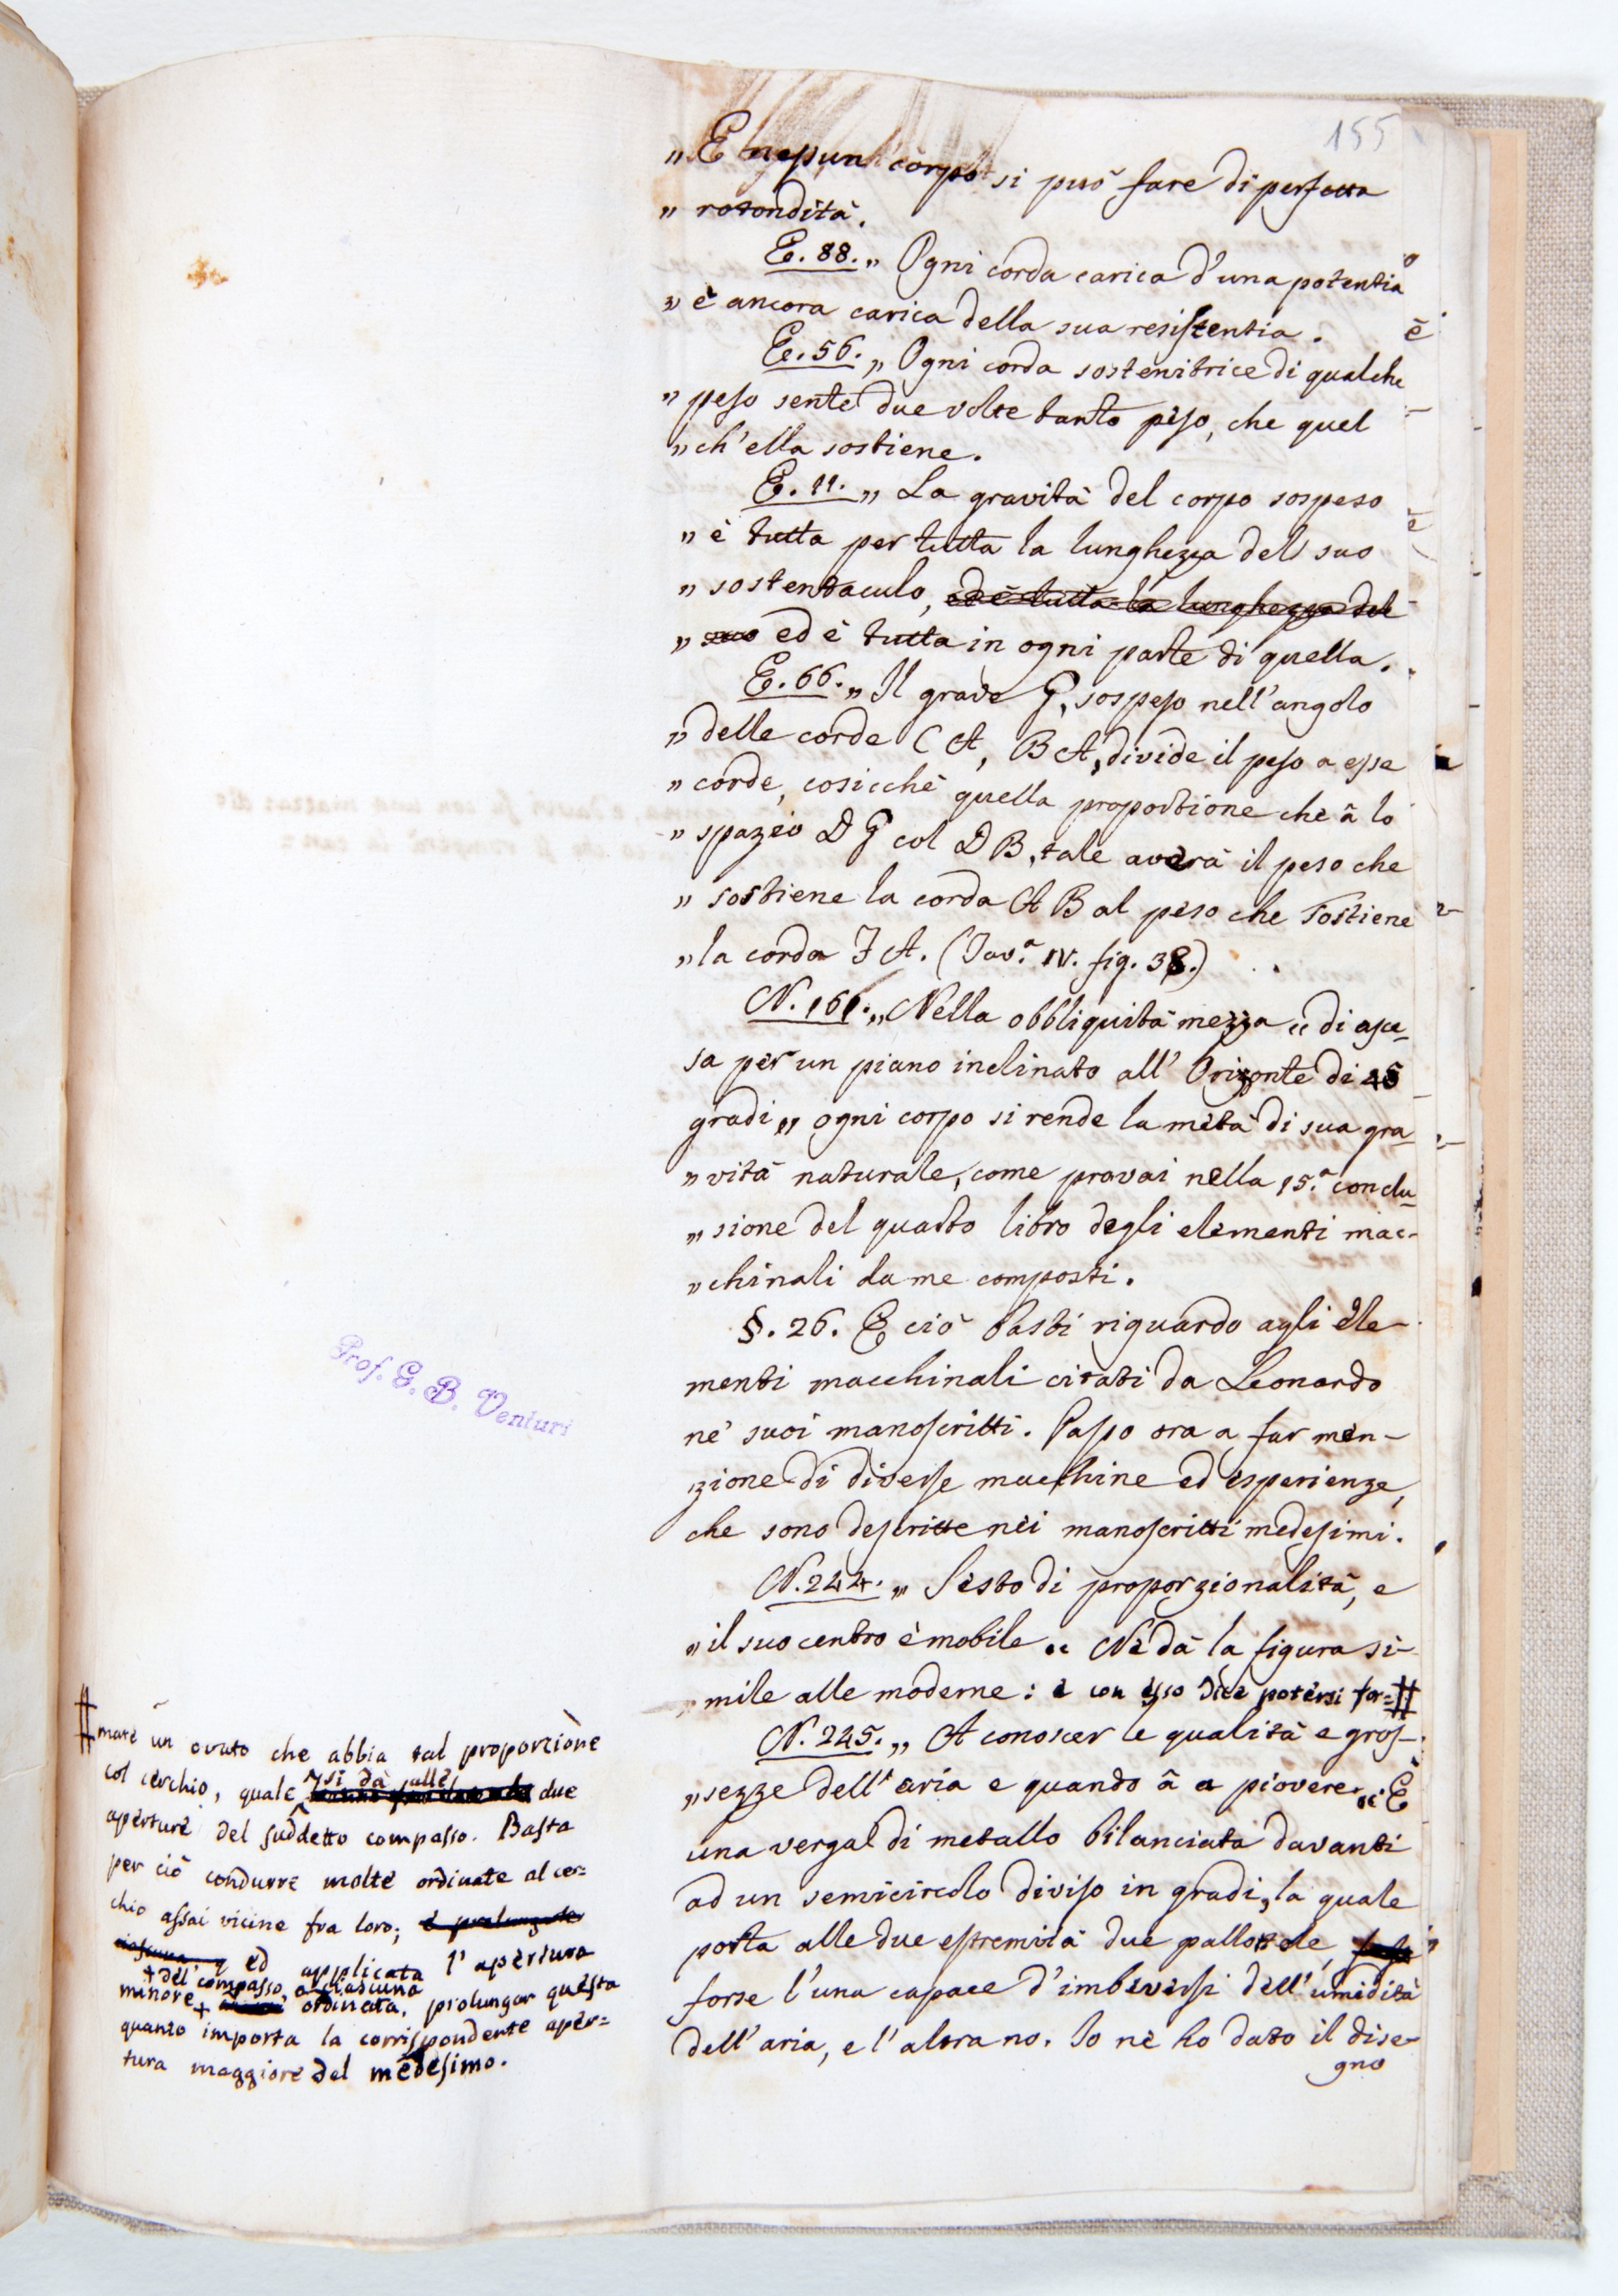 155
„ E nessun corpo si può fare di perfetta
„ rotondità.
E. 88. „ Ogni corda carica d'una potentia
„ è ancora carica della sua resistentia.
E. 56. „ Ogni corda sostenitrice di qualche
„ peso sente due volte tanto peso, che quel
„ ch'ella sostiene.
E. 11. „ La gravità del corpo sospeso
„ è tutta per tutta la lunghezza del suo
„ sostentaculo, ed è tutta la lunghezza del
„ suo ed è tutta in ogni parte di quella.
E. 66. „ Il grave G, sospeso nell'angolo
„ delle corde C A, B A, divide il peso a esse
„ corde, cosicchè quella proportione che à lo
„ spazio D G col D B, tale averà il peso che
„ sostiene la corda A B al peso che sostiene
„ la corda I A. (Tav.a IV. fig. 38.)
N. 161. „ Nella obbliquità mezza „ di asce-
sa per un piano inclinato all'Orizonte di 45
gradi „ ogni corpo si rende la metà di sua gra-
„ vità naturale, come provai nella 15.a conclu-
„ sione del quarto libro degli elementi mac-
„ chinali da me composti.
§. 26. E ciò basti riguardo agli Ele-
menti macchinali citati da Leonardo
ne' suoi manoscritti. Passo ora a far men-
zione di diverse macchine ed esperienze,
che sono descritte nei manoscritti medesimi.
N. 244. „ Sesto di proporzionalità, e
„ il suo centro è mobile „ Ne dà la figura si-
mile alle moderne: e con esso dice potersi for= #
N. 245. „ A conoscer le qualità e gros-
„ sezze dell'aria e quando à a piovere „: È
una verga di metallo bilanciata davanti
ad un semicircolo diviso in gradi, la quale
porta alle due estremità due pallottole,
forse l'una capace d'imbeversi dell'umidità
dell'aria, e l'altra no. Io ne ho dato il dise-
gno
# mare un ovato che abbia tal proporzione
col cerchio, quale si dà sulle due
aperture del suddetto compasso. Basta
per ciò condurre molte ordinate al cer=
chio assai vicine fra loro; e prolungate
ciascuna ed applicata l'apertura
minore + dell'compasso, a ciascuna ordinata, prolungar questa
quanto importa la corrispondente aper=
tura maggiore del medesimo.
Prof. G. B. Venturi